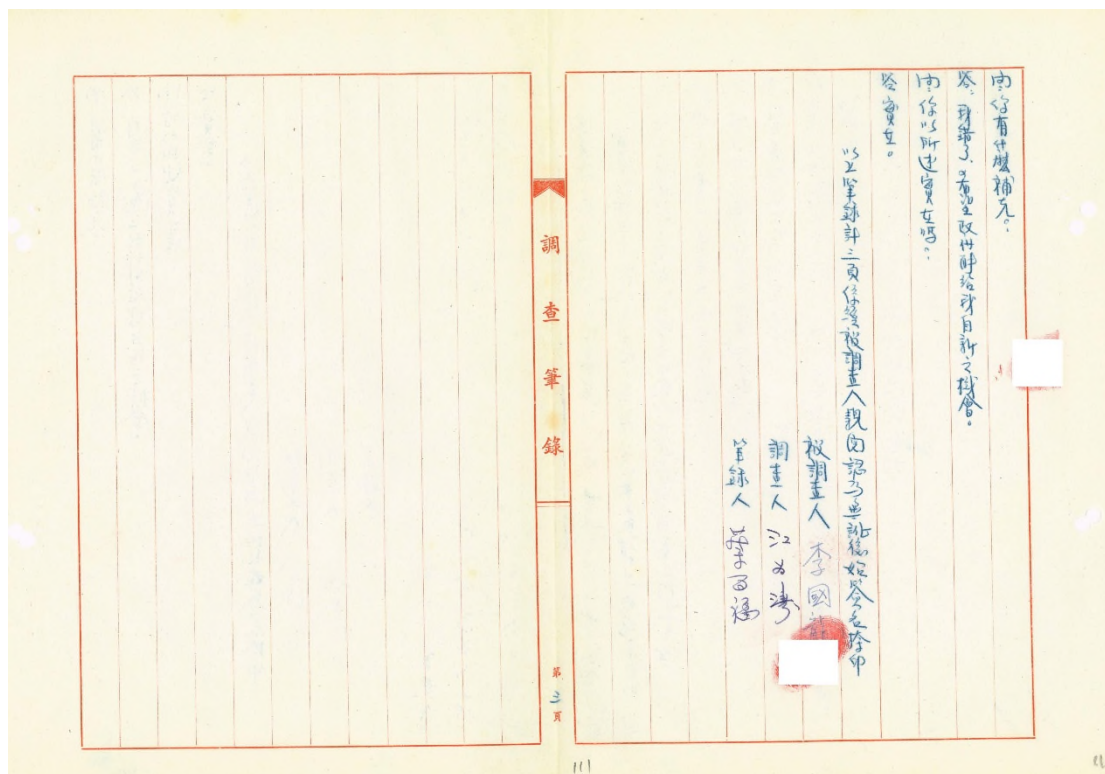 問你有什麼補充?
答:我錯了,希望政府能給我自新之機會。
問你以所述實在嗎?
答實在。
以上筆錄計三頁係經被調查人親閱認為無訛後始簽名捺印
被調查人 李國
調查人 江
筆錄人 葉百福
調查筆錄
第3頁
111